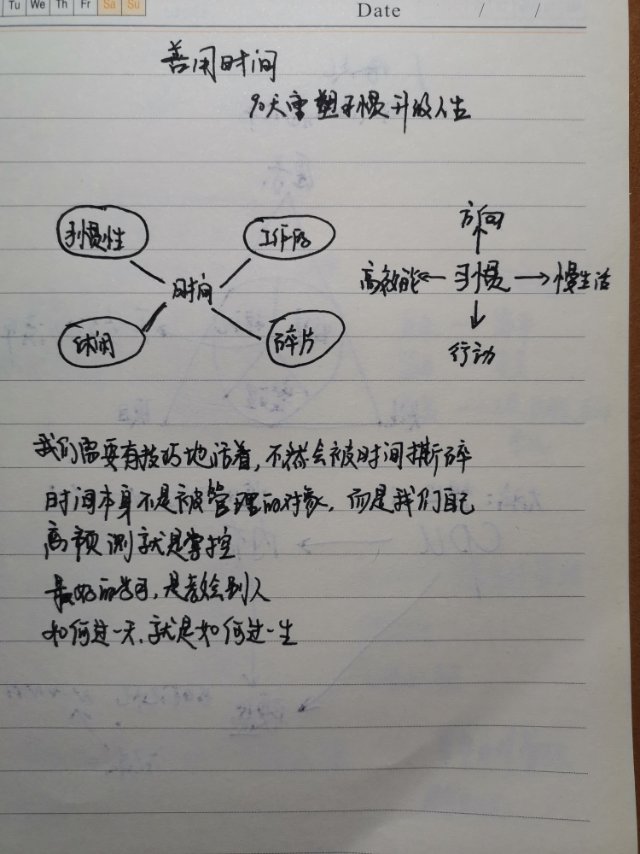 Tu We Th Fr Sa Su
Date / /
善用时间
90天重塑习惯升级人生
习惯性
工作的
时间
休闲
碎片
方向
高效能 习惯 慢生活
行动
我们需要有技巧地活着，不然会被时间撕碎
时间本身不是被管理的对象，而是我们自己
高预测就是掌控
最好的学习，是教给别人
如何过一天、就是如何过一生
CDU